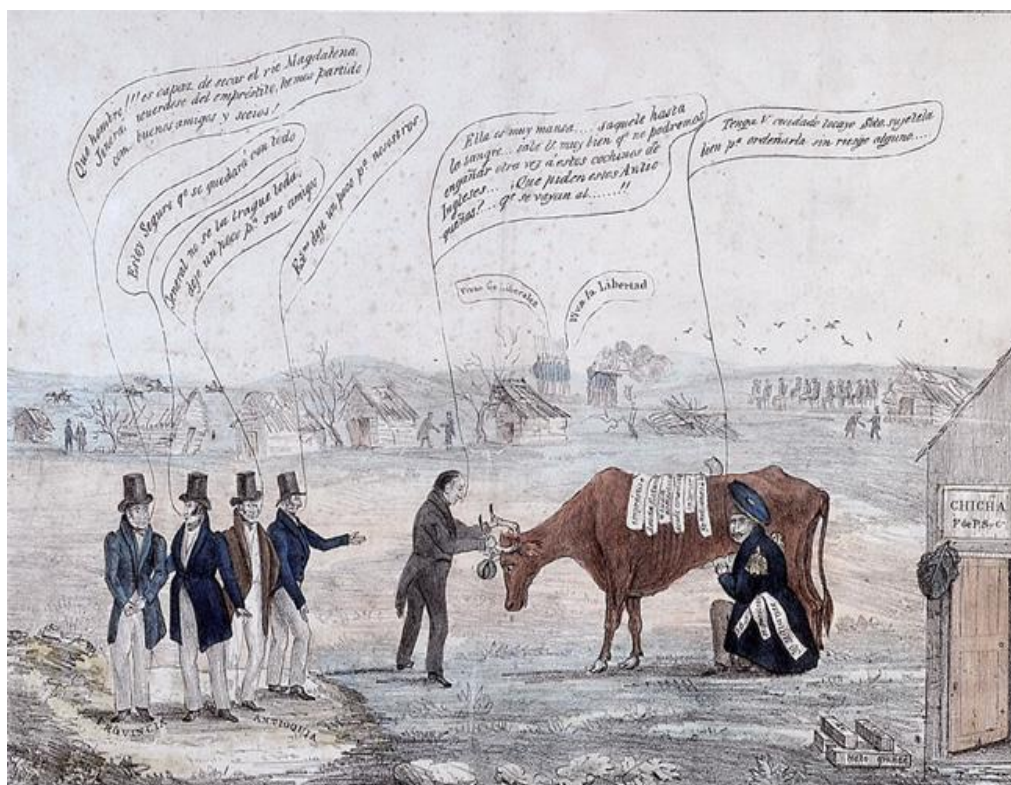 Que hombre!!! es capaz de secar el rio Magdalena.
Jeneral, acuerdese del empréstito, hemos partido
como buenos amigos y socios!
Estoy Seguro qe. se quedará con todo
General no se la trague toda,
deje un poco pa. sus amigos
deje un poco pa. nosotros.
Ella es muy mansa.... saquele hasta
la sangre... sale U. muy bien qe. no podremos
engañar otra vez á estos cochinos de
Ingleses... ¿Que piden estos Antio
queños?... qe. se vayan al......!!
Tenga V. cuidado tocayo sujetela
bien pa. ordeñarla sin riesgo alguno....
Vivan los liberales
Viva la Libertad
CHICHA
PROVINCIA
ANTIOQUIA